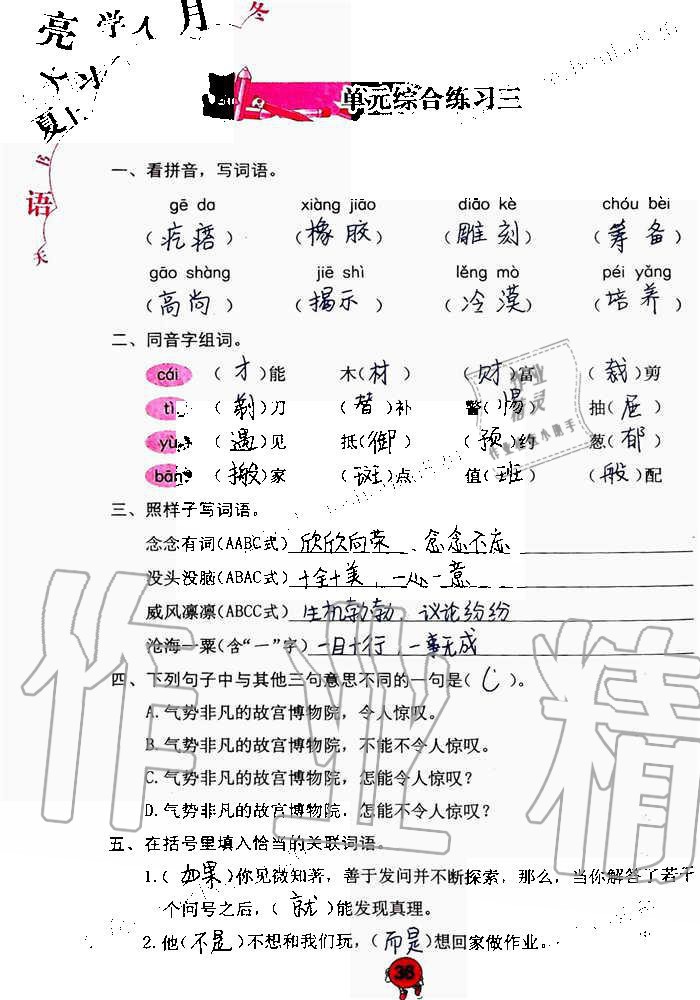 亮 学 人 月 冬
夏
语
天
单元综合练习三
一、看拼音，写词语。
gē da xiàng jiāo diāo kè chóu bèi
（疙瘩）（橡胶）（雕刻）（筹备）
gāo shàng jiē shì lěng mò péi yǎng
（高尚）（揭示）（冷漠）（培养）
二、同音字组词。
cái （才）能 木（材） （财）富 （裁）剪
tì （剃）刀 （替）补 警（惕） 抽（屉）
yù （遇）见 抵（御） （预）约 葱（郁）
bān （搬）家 （斑）点 值（班） （般）配
三、照样子写词语。
念念有词（AABC式）欣欣向荣、念念不忘
没头没脑（ABAC式）十全十美，一心一意
威风凛凛（ABCC式）生机勃勃，议论纷纷
沧海一粟（含“一”字）一目十行，一事无成
四、下列句子中与其他三句意思不同的一句是（C）。
A. 气势非凡的故宫博物院，令人惊叹。
B. 气势非凡的故宫博物院，不能不令人惊叹。
C. 气势非凡的故宫博物院，怎能令人惊叹？
D. 气势非凡的故宫博物院，怎能不令人惊叹？
五、在括号里填入恰当的关联词语。
1.（如果）你见微知著，善于发问并不断探索，那么，当你解答了若干
个问号之后，（就）能发现真理。
2. 他（不是）不想和我们玩，（而是）想回家做作业。
36
作业精